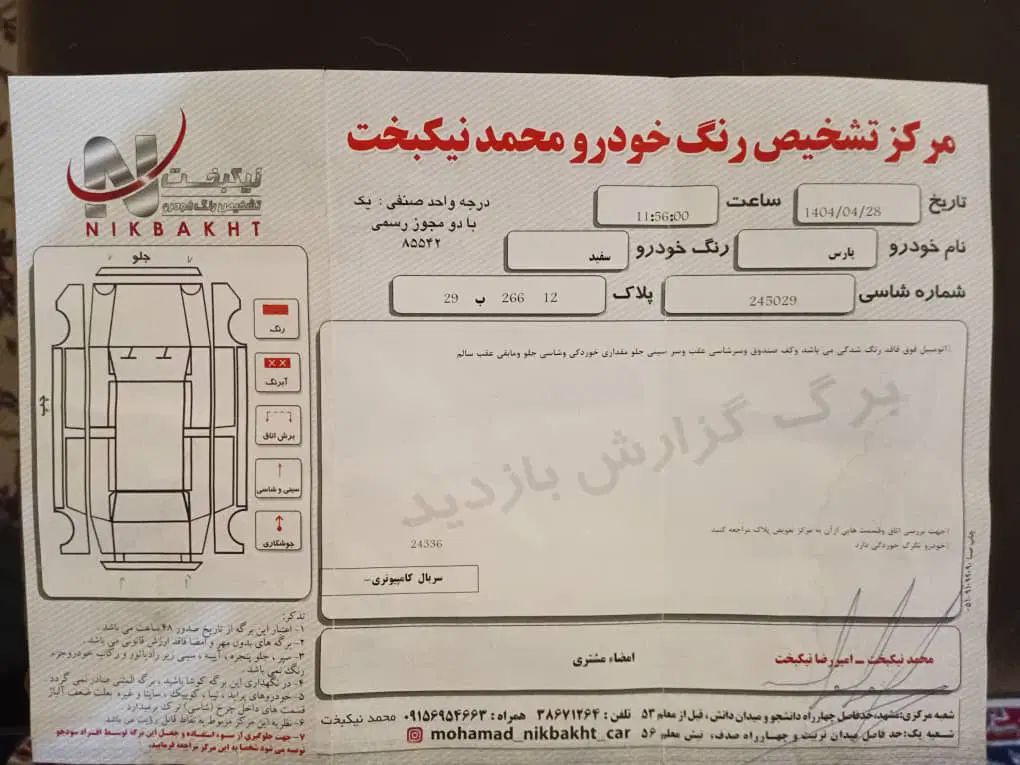 مرکز تشخیص رنگ خودرو محمد نیکبخت
نیکبخت
تشخیص رنگ خودرو
NIKBAKHT
درجه واحد صنفی : یک
با دو مجوز رسمی
۸۵۵۴۲
تاریخ 1404/04/28 ساعت 11:56:00
نام خودرو پارس رنگ خودرو سفید
شماره شاسی 245029 پلاک 12 266 ب 29
جلو
چپ
رنگ
آبرنگ
برش اتاق
سینی و شاسی
جوشکاری
اتومبیل فوق فاقد رنگ شدگی می باشد وکف صندوق وسرشاسی عقب وسر سینی جلو مقداری خوردگی وشاسی جلو ومابقی عقب سالم
برگ گزارش بازدید
جهت بررسی اتاق وقسمت هایی ازآن به مرکز تعویض پلاک مراجعه کنید
خودرو تگرگ خوردگی دارد
24336
سریال کامپیوتری-
محمد نیکبخت ــ امیررضا نیکبخت
امضاء مشتری
تذکر:
۱- اعتبار این برگه از تاریخ صدور ۴۸ ساعت می باشد .
۲- برگه های بدون مهر و امضا فاقد ارزش قانونی می باشد .
۳- سپر ، جلو پنجره ، آیینه ، سینی زیر رادیاتور و رکاب خودروجزء
رنگ نمی باشد .
۴- در نگهداری این برگه کوشا باشید ، برگه المثنی صادر نمی گردد .
۵- خودروهای پراید ، تیبا ، کوییک ، ساینا و غیره بعلت ضعف آلیاژ
قسمت های داخل چرخ (شاسی) ترک برمیدارد .
۶- نظریه این مرکز مربوط به نقاط قابل رؤیت می باشد
۷- جهت جلوگیری از سوء استفاده و جعل این برگه توسط افراد سودجو
توصیه می شود شخصا به این مرکز مراجعه فرمایید.
شعبه مرکزی:مشهد، حدفاصل چهارراه دانشجو و میدان دانش ، قبل از معلم ۵۳ تلفن : ۳۸۶۷۱۲۶۴ همراه : ۰۹۱۵۶۹۵۴۶۶۳ محمد نیکبخت
شعبه یک: حد فاصل میدان تربیت و چهارراه صدف، نبش معلم ۵۶ mohamad_nikbakht_car